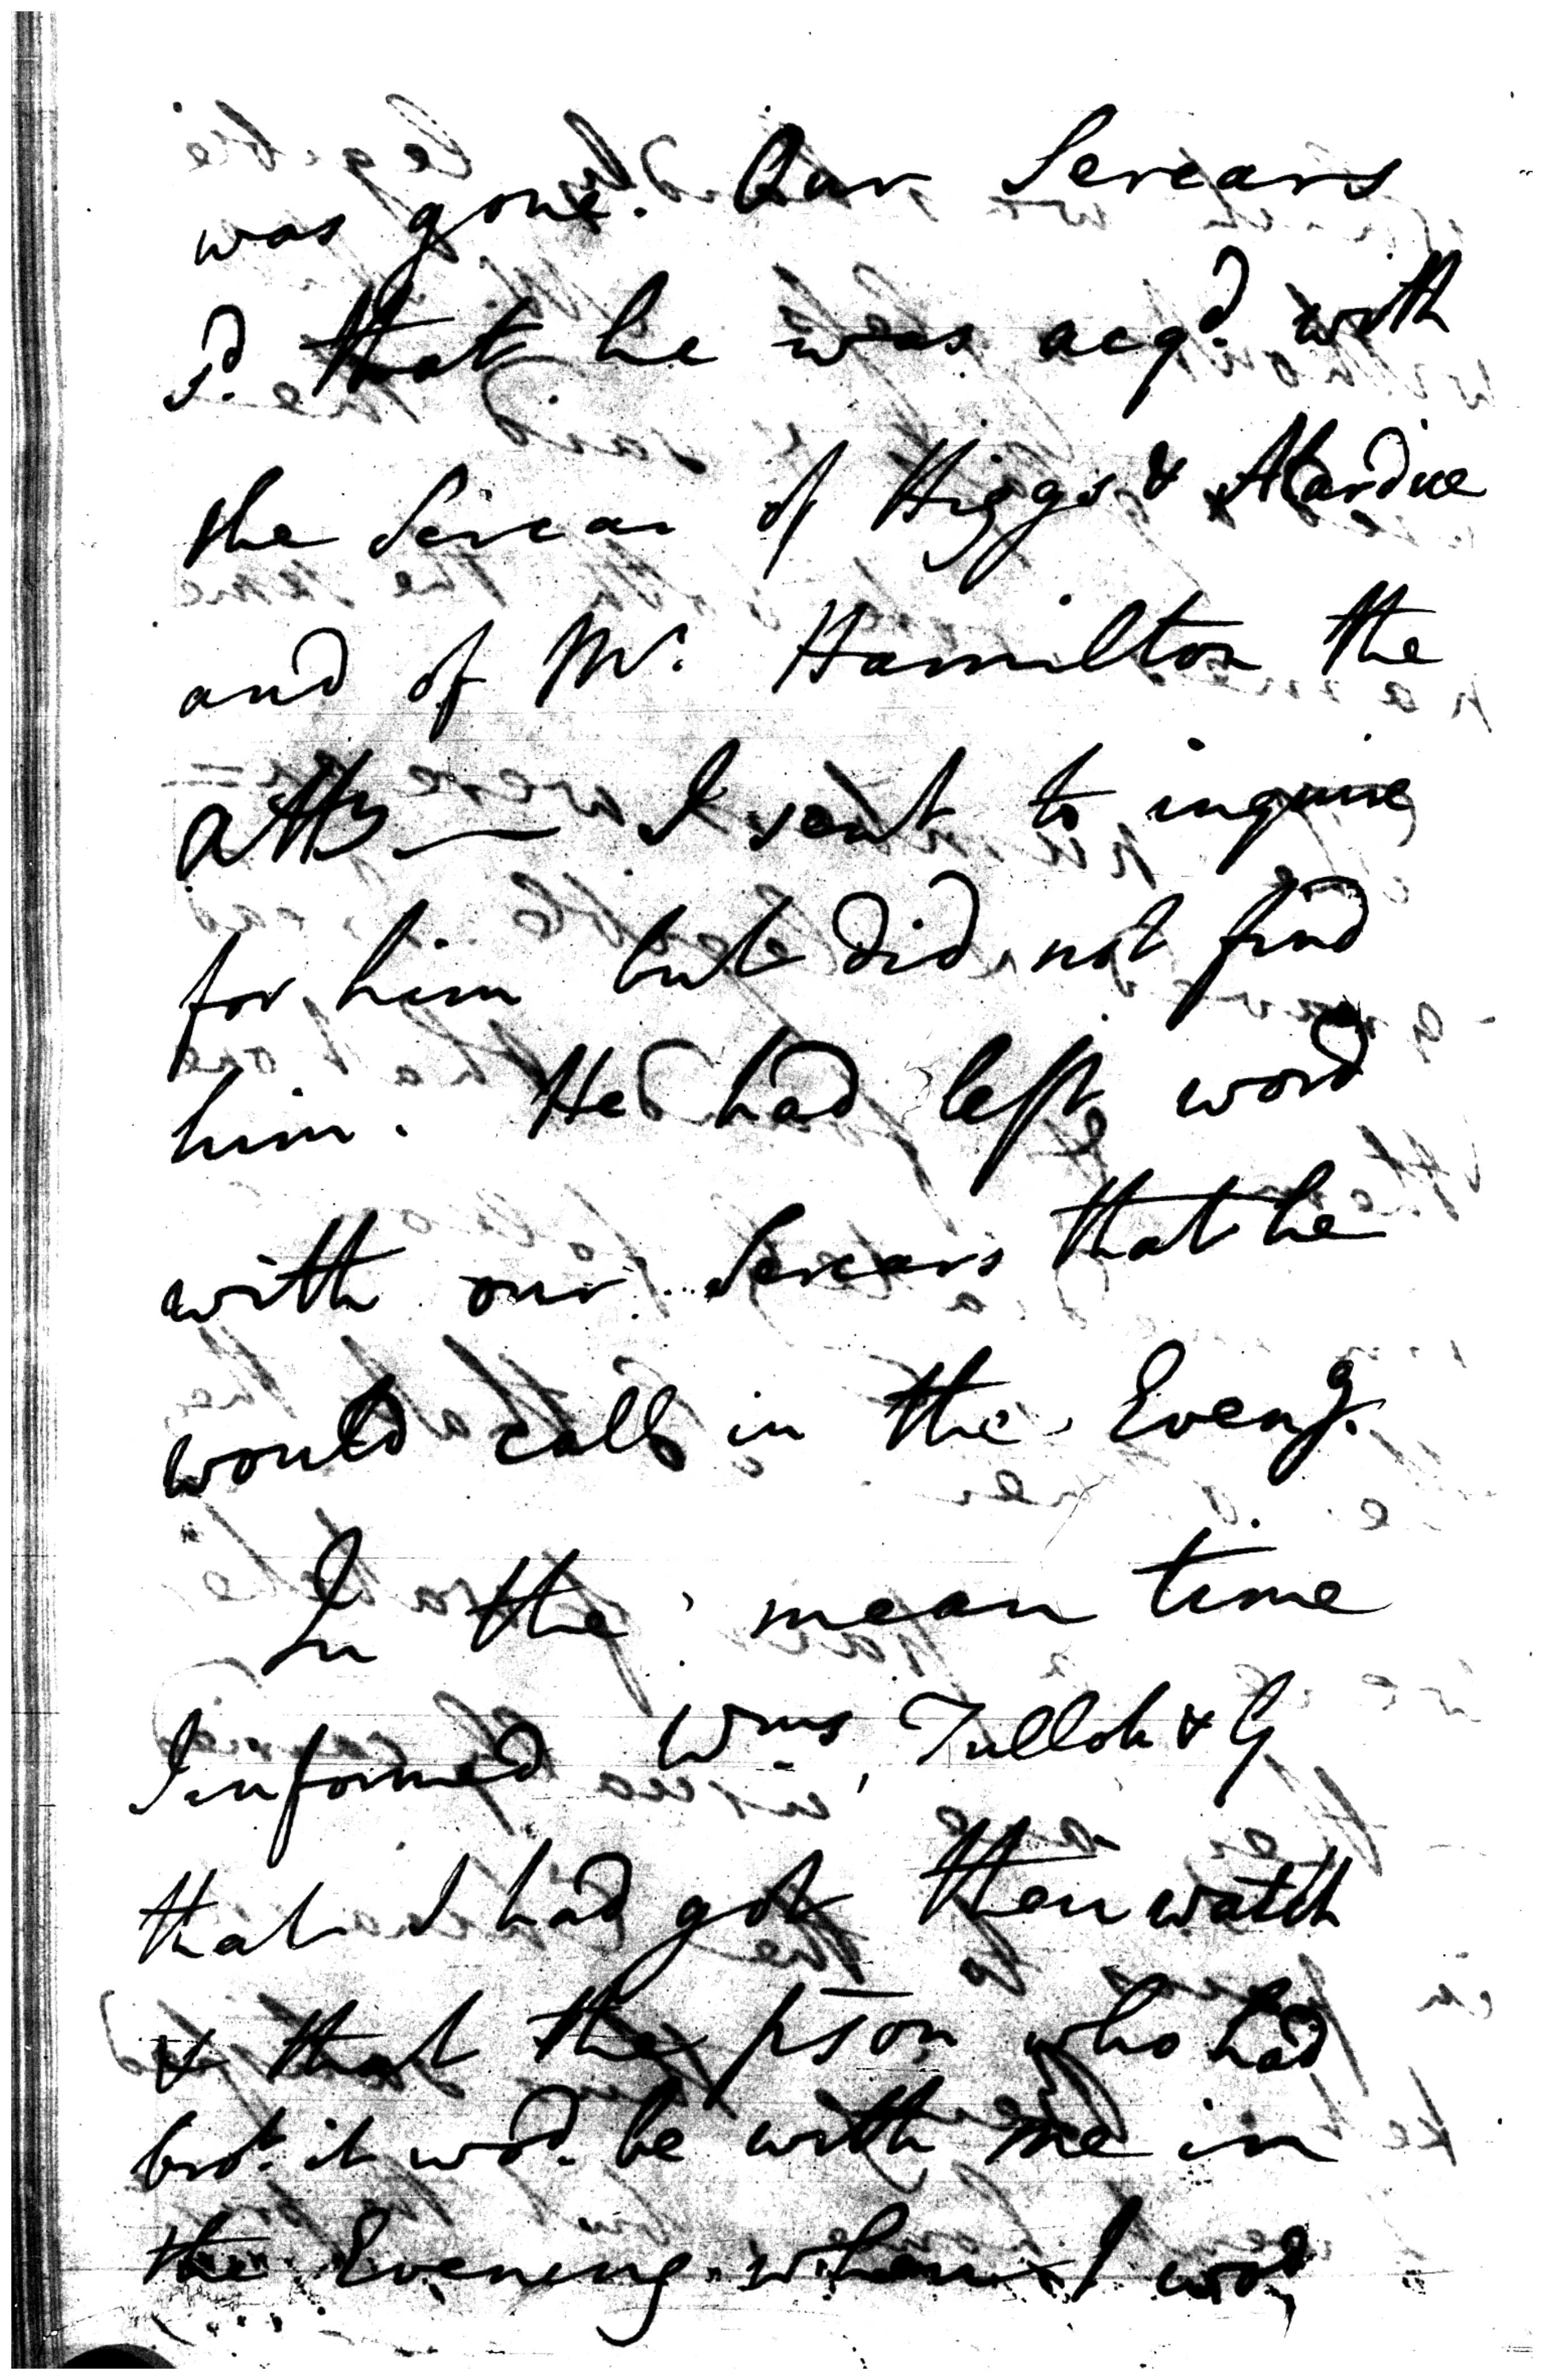 was gone. Our Sercars
sd. that he was acqd. with
the Sercar of Higgs &
and of Mr. Hamilton the
Atty — I sent to inquire
for him but did not find
him. He had left word
with our Sercars that he
would call in the Eveng.
In the mean time
Informed Wms, Tulloh & G
that I had got their watch
& that the pson who had
brot. it wod. be with me in
the Evening when I wod